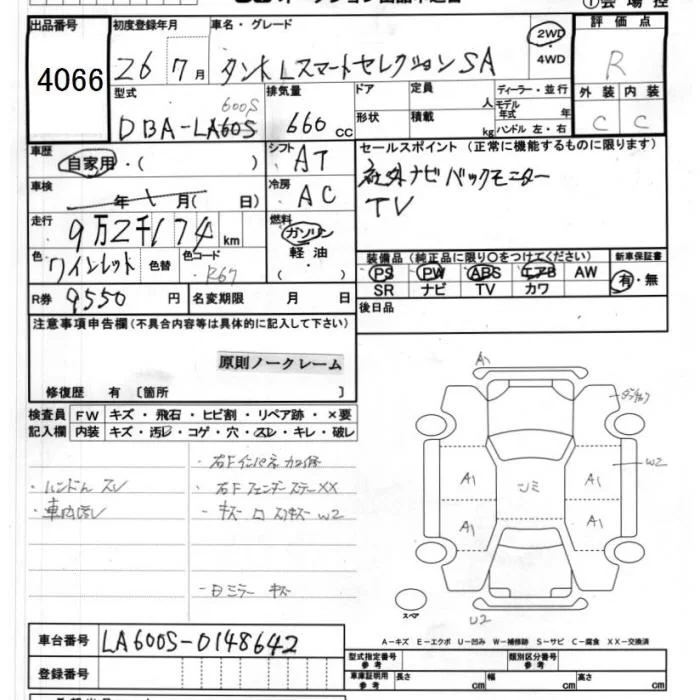 ①会場控
出品番号
4066
初度登録年月
26 7月
車名・グレード
タントLスマートセレクションSA
2WD
・
4WD
評価点
R
外装 内装
C C
型式
600S
DBA-LA60S
排気量
660 cc
ドア
形状
定員 人
積載 kg
ディーラー・並行
モデル年式 年
ハンドル 左・右
車歴
自家用・( )
シフト
AT
セールスポイント (正常に機能するものに限ります)
社外ナビ バックモニター
TV
車検
年 月( 日)
冷房
AC
走行
9万2千174 km
燃料
ガソリン
軽油
・
( )
色
ワインレッド
色替
色コード
R67
装備品 (純正品に限り〇をつけてください)
PS PW ABS エアB AW
SR ナビ TV カワ
新車保証書
有・無
R券 9550 円
名変期限 月 日
後日品
注意事項申告欄(不具合内容等は具体的に記入して下さい)
原則ノークレーム
修復歴 有 [箇所 ]
検査員
記入欄
FW キズ・飛石・ヒビ割・リペア跡・×要
内装 キズ・汚レ・コゲ・穴・スレ・キレ・破レ
・ハンドル スレ
・車内汚レ
・右Fインパネ
・右F フェンダーステーXX
・キズ
W2
ミラー キズ
A1
W2
A1
A1
A1
A1
U2
スペア
A-キズ E-エクボ U-凹み W-補修跡 S-サビ C-腐食 XX-交換済
車台番号 LA600S-0148642
登録番号
型式指定番号
参考
類別区分番号
参考
車庫証明用
参考
長さ cm
幅 cm
高さ cm